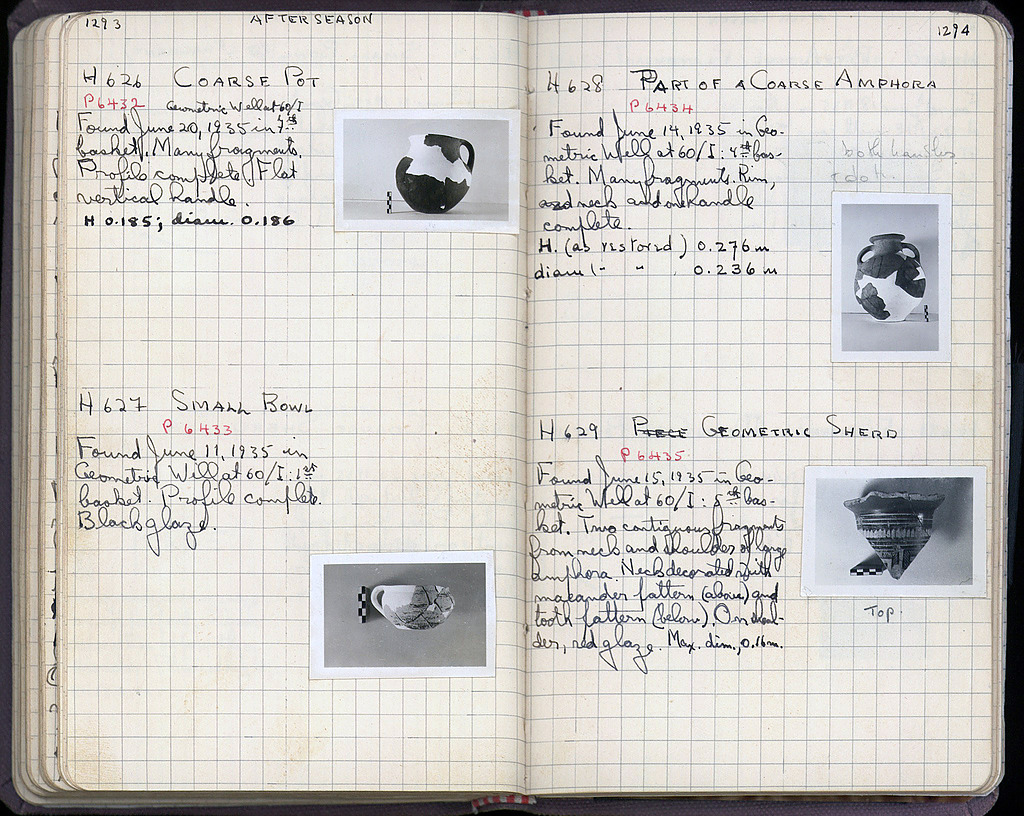 1293
AFTER SEASON
H 626 COARSE POT
P 6432 Geometric Well at 60/I
Found June 20, 1935 in
basket. Many fragments.
Profile complete. Flat
vertical handle.
H 0.185; diam. 0.186
H 627 SMALL BOWL
P 6433
Found June 11, 1935 in
Geometric Well at 60/I: 1st
basket. Profile complete.
Black glaze.
1294
H 628 PART OF A COARSE AMPHORA
P 6434
Found June 14, 1935 in Geo-
metric Well at 60/I: 4th bas-
ket. Many fragments. Rim,
neck and one handle
complete.
H. (as restored) 0.276 m
diam (" " 0.236 m
both handles
H 629 PIECE GEOMETRIC SHERD
P 6435
Found June 15, 1935 in Geo-
metric Well at 60/I: 5th bas-
ket. Two contiguous fragments
from neck and shoulder of large
amphora. Neck decorated with
maeander pattern (above) and
tooth pattern (below). On shoul-
der, red glaze. Max. dim., 0.16 m.
Top.